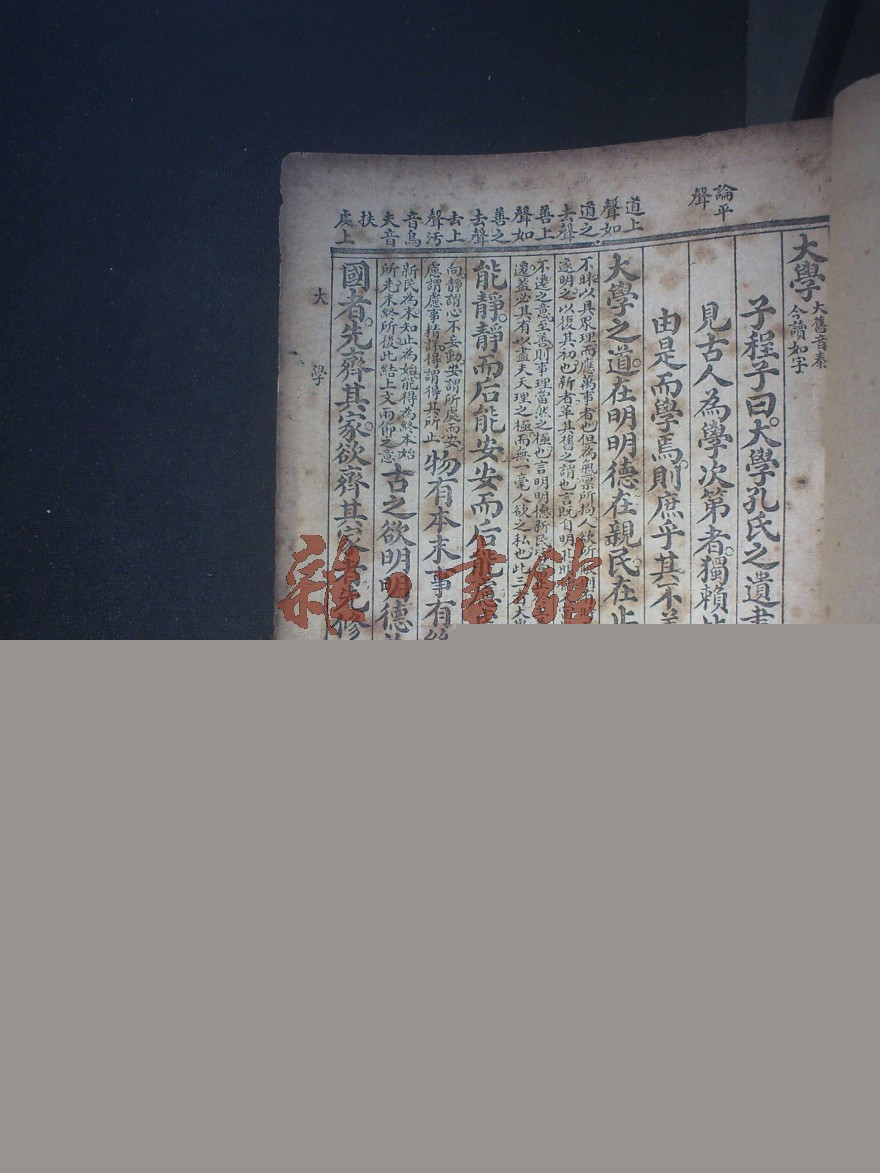 論平
聲
道上
聲如
道之
去聲
善上
聲如
善之
去聲
去上
聲汚
音烏
夫音
扶
處上
大學
大舊音泰
今讀如字
子程子曰大學孔氏之遺書
見古人為學次第者獨賴
由是而學焉則庶乎其不
大學之道在明明德在親民在止
不昧以具眾理而應萬事者也但為氣稟所拘人欲所
遂明之以復其初也新者革其舊之謂也言既自明其明
不遷之意至善則事理當然之極也言明明德新民
遷蓋必其有以盡夫天理之極而無一毫人欲之私也此
能靜靜而后能安安而后能慮
向靜謂心不妄動安謂所處而安
慮謂處事精詳得謂得其所止
物有本末事有終
新民為末知止為始能得為終本始
所先末終所後此結上文兩節之意
古之欲明明德
國者先齊其家欲齊其家者先修
大學
雜·書館